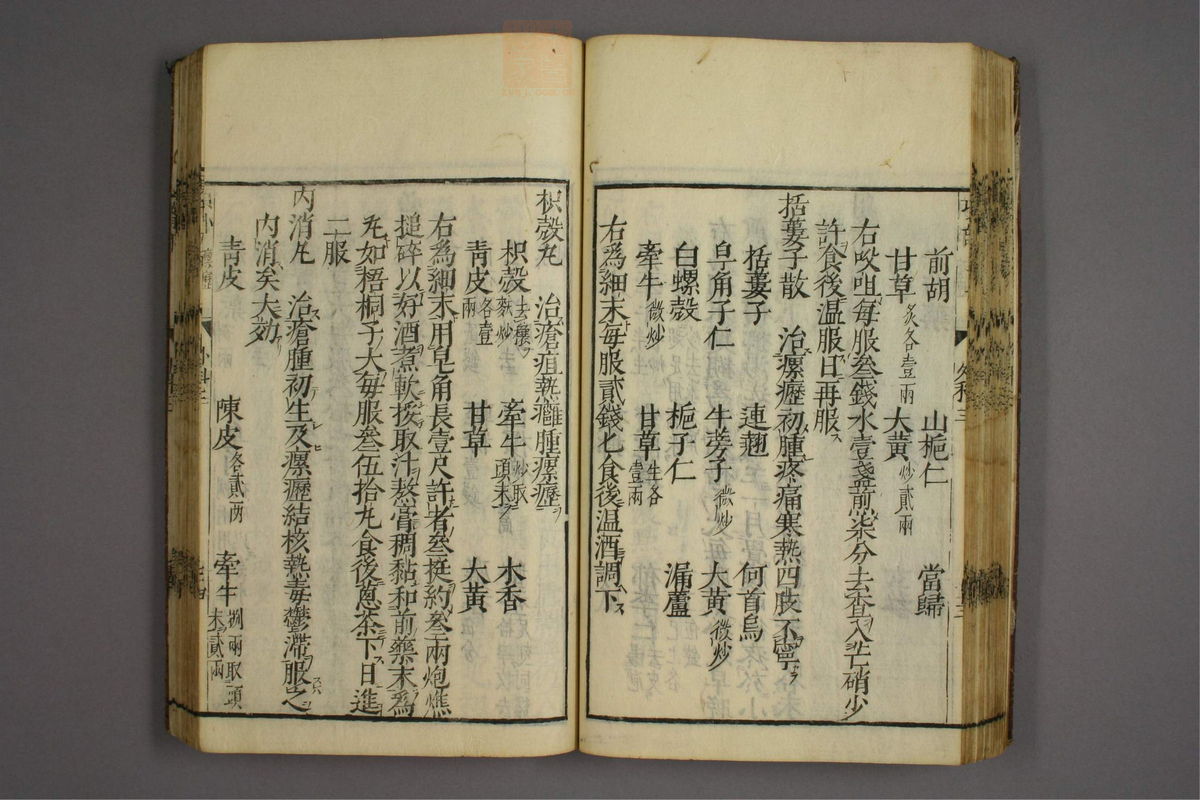 前胡 山梔仁 當歸
甘草炙各壹兩 大黃炒貳兩
右㕮咀每服叁錢水壹盞煎柒分去查入芒硝少
許食後溫服日再服
括蔞子散 治瘰癧初腫疼痛寒熱四肢不寧
括蔞子 連翹 何首烏
皁角子仁 牛蒡子微炒 大黃微炒
白螺殼 梔子仁 漏蘆
牽牛微炒 甘草生各壹兩
右爲細末每服貳錢匕食後溫酒調下
枳殼丸 治瘡疽熱癰腫瘰癧
枳殼去穰麩炒 牽牛炒取頭末 木香
靑皮各壹兩 甘草 大黃
右爲細末用皂角長壹尺許者叁挺約叁兩炮燋
搥碎以好酒煮軟挼取汁熬膏稠黏和前藥末爲
丸如梧桐子大每服叁伍拾丸食後蔥茶下日進
二服
內消丸 治瘡腫初生及瘰癧結核熱毒鬱滯服之
內消矣大効
靑皮 陳皮各貳兩 牽牛捌兩取頭末貳兩